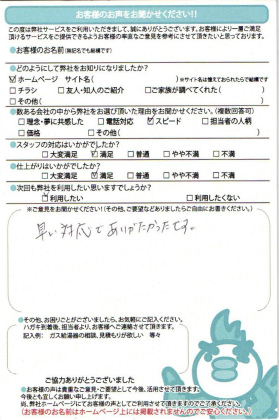 お客様のお声をお聞かせください!!
この度は弊社サービスをご利用いただきまして、誠にありがとうございます。お客様により一層ご満足
頂けるサービスをご提供できるようお客様の率直なご意見を参考にさせて頂きたいと思っております。
●お客様のお名前(無記名でも結構です)
●どのようにして弊社をお知りになりましたか?
☑ホームページ サイト名( )※サイト名は憶えておられたらで結構です
□チラシ □友人・知人のご紹介 □ご家族が調べてくれた( )
□その他( )
●数ある会社の中から弊社をお選び頂いた理由をお聞かせください。(複数回答可)
□理念・夢に共感した □電話対応 ☑スピード □担当者の人柄
□価格 □その他( )
●スタッフの対応はいかがでしたか?
□大変満足 ☑満足 □普通 □やや不満 □不満
●仕上がりはいかがでしたか?
□大変満足 ☑満足 □普通 □やや不満 □不満
●次回も弊社を利用したい思いますでしょうか?
☑利用したい □利用したくない
※ご意見をお聞かせください!(その他、ご要望などありましたらご自由にお書きください。)
早い対応でありがたかったです。
●その他、お困りごとがございましたら、お気軽にご記入ください。
ハガキ到着後、担当者より、お客様へご連絡させて頂きます。
記入例: ガス給湯器の相談、見積もりが欲しい 等々
ご協力ありがとうございました
●お客様の声は貴重なご意見・ご要望として今後、活用させて頂きます。
今後とも宜しくお願い申し上げます。
尚、弊社ホームページにてお客様の声としてご利用させて頂きますのでご了承ください。
(お客様のお名前はホームページ上には掲載されませんのでご安心ください。)